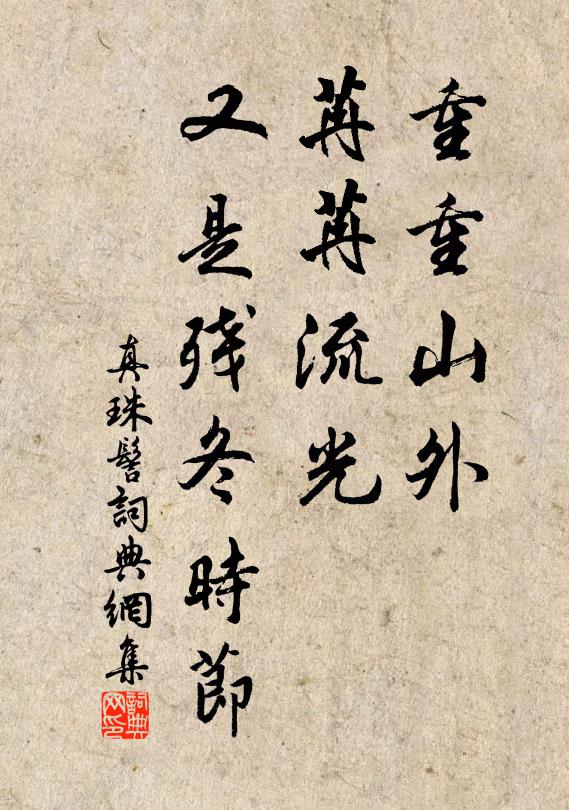 重重山外
苒苒流光
又是残冬時莭
真珠髻詞典網集
詞典网印